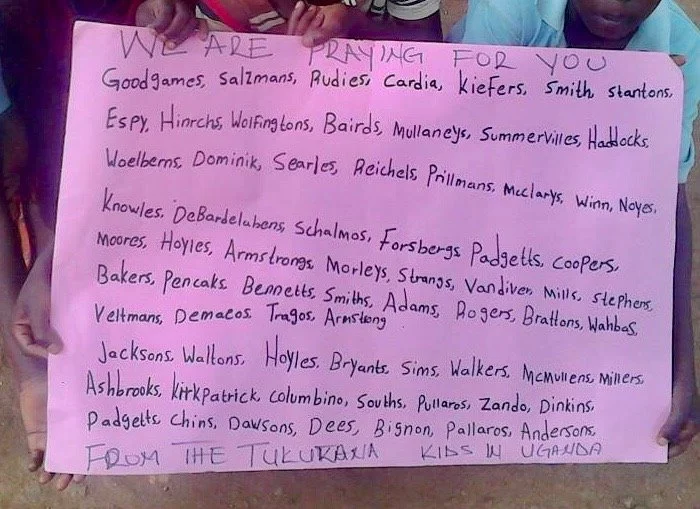 WE ARE PRAYING FOR YOU
Goodgames, Salzmans, Rudies, Cardia, Kiefers, Smith, Stantons,
Espy, Hinrchs, Wolfingtons, Bairds, Mullaneys, Summervilles, Haddocks,
Woelberns, Dominik, Searles, Reichels, Prillmans, McClarys, Winn, Noyes,
Knowles, DeBardelabens, Schalmos, Forsbergs, Padgetts, Coopers,
Moores, Hoyles, Armstrongs, Morleys, Strangs, Vandiver, Mills, Stephens,
Bakers, Pencaks, Bennetts, Smiths, Adams, Rogers, Brattons, Wahbas,
Veltmans, Demaeos, Tragos, Armstrong
Jacksons, Waltons, Hoyles, Bryants, Sims, Walkers, McMullens, Millers,
Ashbrooks, Kirkpatrick, Columbino, Souths, Pullaros, Zando, Dinkins,
Padgetts, Chins, Dawsons, Dees, Bignon, Pallaros, Andersons,
FROM THE TUKUKANA KIDS IN UGANDA